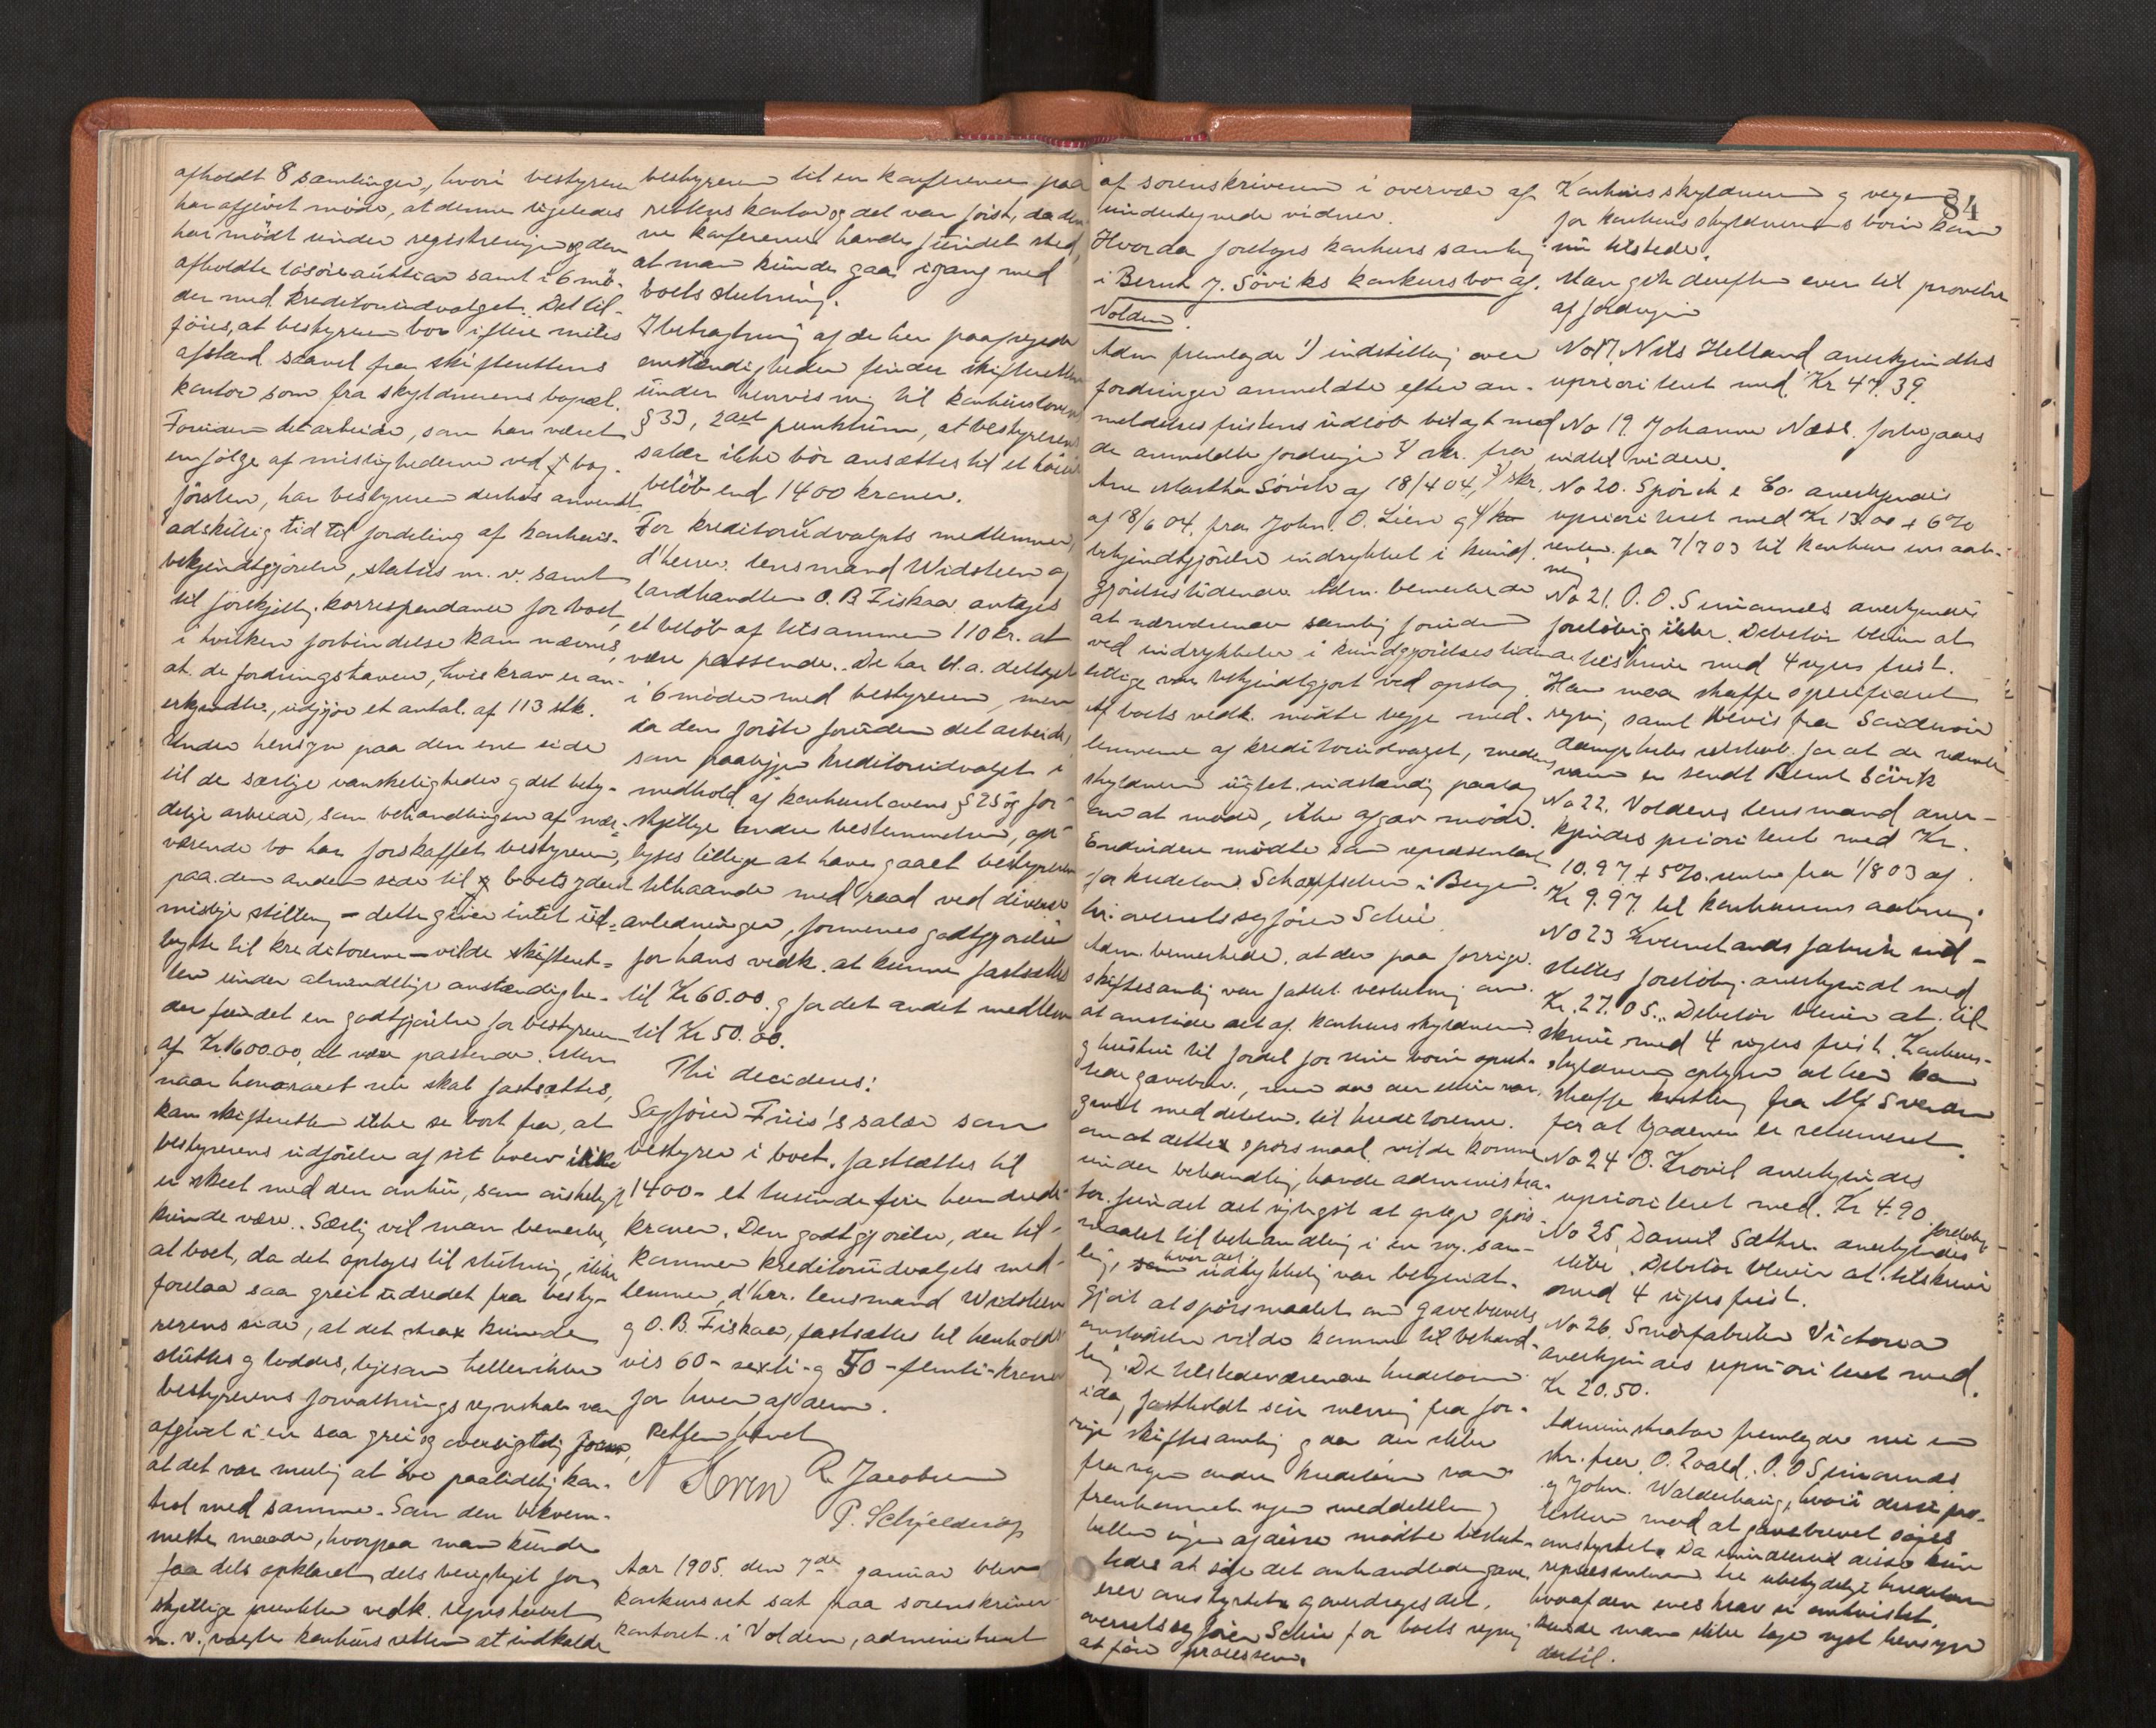 afholdt 8 samlinger, hvori bestyreren
har afgivet møde, at denne ligeledes
har mødt under registreringen og den
afholdte løsøreauktion samt i 6 mø-
der med kreditorudvalget. Det til-
føies, at bestyreren bor i flere miles
afstand saavel fra skifterettens
kontor som fra skyldnerens bopæl.
Foruden det arbeide, som har været
en følge af misligheden ved bog-
førslen, har bestyreren derhos anvendt
adskillig tid til fordeling af konkurs-
bekjendtgjørelse, status m. v. samt
til forskjellig korrespondance for boet,
i hvilken forbindelse kan nævnes,
at de fordringshavere, hvis krav er an-
erkjendte, udgjør et antal af 113 stk.
Under hensyn paa den ene side
til de særlige vanskeligheder og det bety-
delige arbeide, som behandlingen af nær-
værende bo har forskaffet bestyreren,
paa den anden side til boets yderst
mislige stilling - dette giver intet ud-
bytte til kreditorerne - vilde skifteret-
ten under almindelige omstændighe-
der fundet en godtgjørelse for bestyreren
af Kr 1600.00 at være passende. Men
naar honoraret nu skal fastsættes,
kan skifteretten ikke se bort fra, at
bestyrerens udførelse af sit hverv ikke
er skeet med den omhu, som ønskeligt
kunde være. Særlig vil man bemerke,
at boet, da det optoges til slutning, ikke
forelaa saa greit udredet fra besty-
rerens side, at det strax kunde
sluttes og loddes, ligesom hellerikke
bestyrerens forvaltningsregnskab var
afgivet i en saa grei og oversigtlig form,
at det var mulig at øve paalidelig kon-
trol med samme. Som den bekvem-
meste maade, hvorpaa man kunde
faa dels opklaret, dels berigtiget for-
skjellige punkter vedk. regnskabet
m. v., valgte konkursretten at indkalde
bestyreren til en konference paa
rettens kontor og det var først, da den-
ne konference havde fundet sted,
at man kunde gaa igang med
boets slutning.
I betragtning af de her paapegede
omstændigheder finder skifteretten
under henvisning til konkurslovens
§ 33, 2det punktum, at bestyrerens
salær ikke bør ansættes til et høiere
beløb end 1400 kroner.
For kreditorudvalgets medlemmer,
d'herrer lensmand Widsteen og
landhandler O. B. Fiskaa antages
et beløb af tilsammen 110 kr. at
være passende. De har bl. a. deltaget
i 6 møder med bestyreren, men
da den første foruden det arbeide,
som paaligger kreditorudvalget i
medhold af konkurslovens § 25 og for-
skjellige andre bestemmelser, op-
lyses tillige at have gaaet bestyreren
tilhaande med raad ved diverse
anledninger, formenes godtgjørelsen
for hans vedk. at kunne fastsættes
til Kr 60.00 og for det andet medlem
til Kr 50.00.
Thi decideres:
Sagfører Friis's salær som
bestyrer i boet, fastsættes til
1400 - et tusinde fire hundrede -
kroner. Den godtgjørelse, der til-
kommer kreditorudvalgets med-
lemmer, d'hrr. lensmand Widsteen
og O. B. Fiskaa, fastsættes til henholds-
vis 60 - sexti - og 50 - femti - kroner
for hver af dem.
Retten hævet
R. Jacobsen
P. Schjelderup
Aar 1905 den 7de januar blev
konkursret sat paa sorenskriver-
kontoret i Volden, administreret
84
af sorenskriveren i overvær af
undertegnede vidner.
Hvorda foretoges konkurssamling
i Bernt J. Søviks konkursbo af
Volden.
Adm fremlagde 1) indstilling over
fordringer anmeldte efter an-
meldelsesfristens udløb bilagt med
de anmeldte fordringer 2) skr. fra
Ane Martha Søvik af 18/4 04, 3) skr.
af 18/6 04, fra John. O. Lien og 4)
bekjendtgjørelse indrykket i kund-
gjørelsestidende. Adm. bemerkede
at nærværende samling foruden
ved indrykkelse i kundgjørelsestidende
tillige var bekjendtgjort ved opslag.
Af boets vedk. mødte begge med-
lemmerne af kreditorudvalget, medens
skyldneren uagtet indstændig paalæg
om at møde, ikke afgav møde.
Endvidere mødte som repræsentant
for kreditor Schaffscher i Bergen
hr. overretssagfører Schie.
Adm. bemerkede, at der paa forrige
skiftesamling var fattet beslutning om
at omstøde det af konkursskyldneren
og hustru til fordel for sine børn opret-
tede gavebrev, men da der ikke var
givet meddelelse til kreditorerne
om at dette spørsmaal vilde komme
under behandling, havde administra-
tor fundet det rigtigst at optage spørs-
maalet til behandling i en ny sam-
ling, hvor det udtrykkelig var bekjendt-
gjort at spørsmaalet om gavebrevets
omstødelse vilde komme til behand-
ling. De tilstedeværende kreditorer
idag fastholdt sin mening fra for-
rige skiftesamling og da der ikke
fra nogen anden kreditor var
fremkommet nogen meddelelse,
heller ingen af disse mødte beslut-
tedes at søge det omhandlede gave-
brev omstyrtet og overdroges det
overretssagfører Schie for boets regning
at føre processen.
Konkursskyldneren og verge
for konkursskyldnerens børn kom
nu tilstede.
Man gik derefter over til prøvelse
af fordringer
No 17 Nils Helland anerkjendtes
uprioritert med Kr 47.39.
No 19. Johanne Næss. forbigaaes
indtil videre.
No 20. Spørck & Co. anerkjendes
uprioritert med Kr 13.00 + 6%
renter fra 7/7 03 til konkursens aab-
ning
No 21. O. O. Simonnes anerkjendes
foreløbig ikke. Debitor bliver at
tilskrive med 4 ugers frist.
Han maa skaffe specificeret
regning samt bevis fra Søndmøre
dampskibsselskab for at de nævnte
varer er sendt Bernt Søvik
No 22. Voldens lensmand aner-
kjendes prioritert med Kr.
10.97 + 5% renter fra 1/8 03 af
Kr 9.97 til konkursens aabning
No 23 Kvernelands fabrik ind-
stilles foreløbig anerkjendt med
Kr. 27.05. Debitor bliver at til-
skrive med 4 ugers frist. Konkurs-
skyldneren oplyser at han kan
skaffe kvittering fra Mf Svendsen
for at godserne er returneret.
No 24 O. Krovil anerkjendes
uprioritert med Kr 4.90
No 25. Daniel Sæthre anerkjendes foreløbig
ikke. Debitor bliver at tilskrive
med 4 ugers frist.
No 26. Smørfabriken Victoria
anerkjendes uprioritert med
Kr 20.50.
Administrator fremlagde nu en
skr. fra O. Roald, O. O Simonnes
og John. Walderhaug, hvori disse pro-
testerer mod at gavebrevet søges
omstyrtet. Da imidlertid disse kun
repræsenterer tre ubetydelige kreditorer
hvoraf den enes krav er omtvistet,
kunde man ikke tage noget hensyn
dertil.